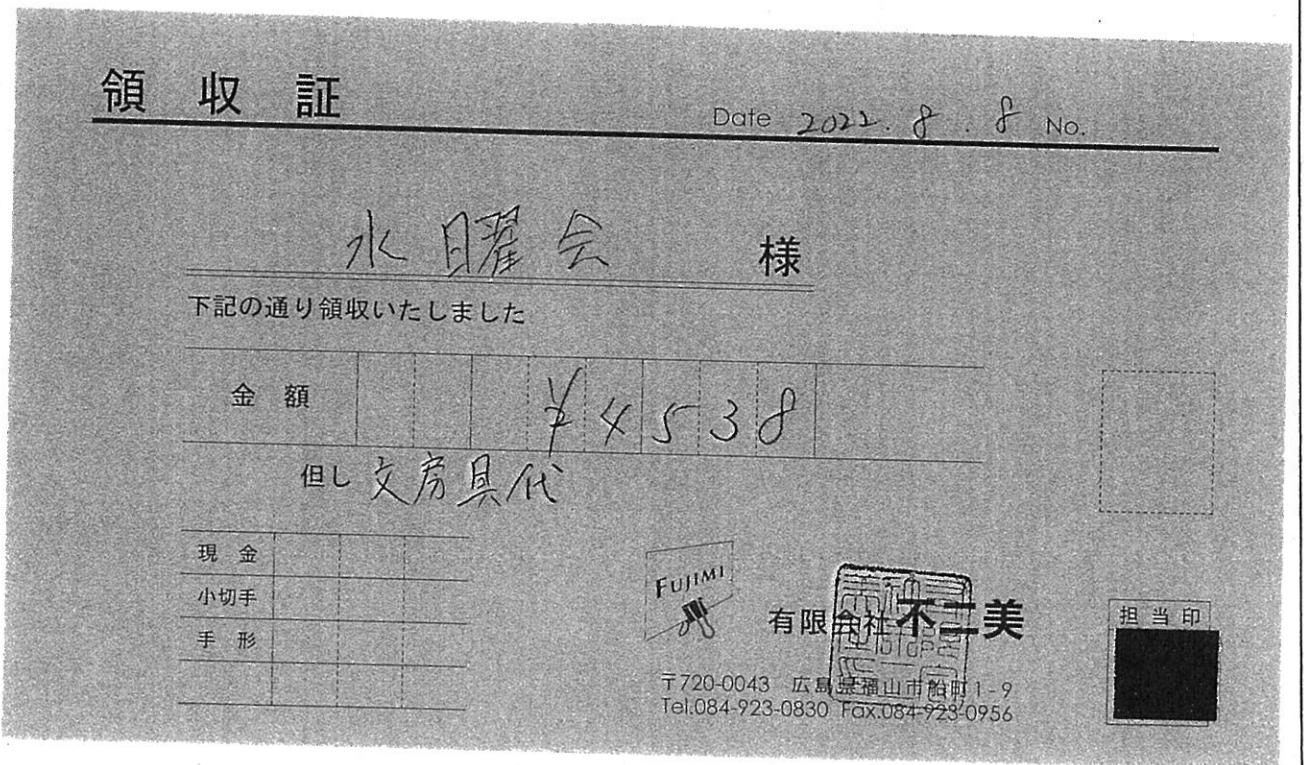 領収証
Date 2022.8.8 No.
水曜会 様
下記の通り領収いたしました
金額 ¥4538
但し 文房具代
現金
小切手
手形
FUJIMI
有限会社 不二美
担当印
〒720-0043 広島県福山市船町1-9
Tel.084-923-0830 Fax.084-923-0956